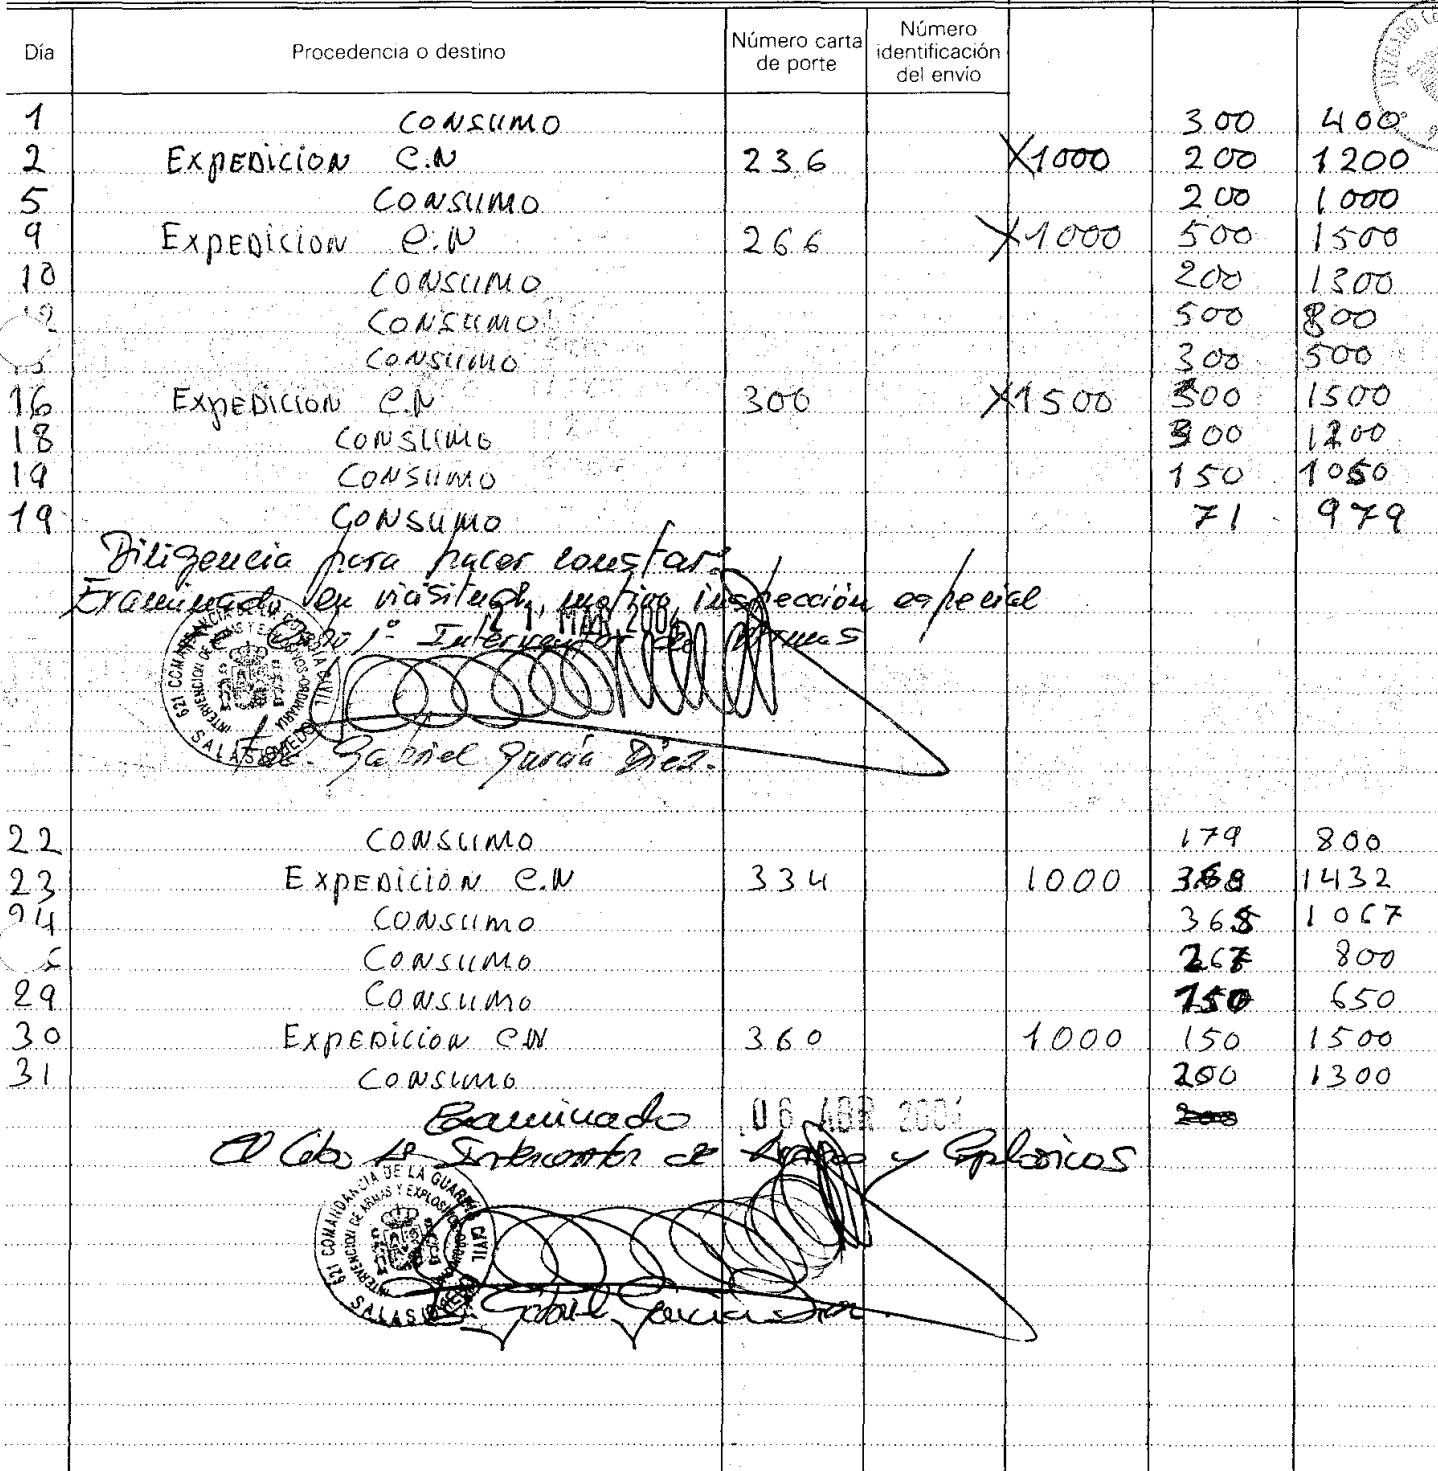 Día Procedencia o destino Número carta de porte Número identificación del envío
1 CONSUMO 300 400
2 EXPEDICION C.N 236 X1000 200 1200
5 CONSUMO 200 1000
9 EXPEDICION C.N 266 X1000 500 1500
10 CONSUMO 200 1300
12 CONSUMO 500 800
CONSUMO 300 500
16 EXPEDICION C.N 300 X1500 500 1500
18 CONSUMO 300 1200
19 CONSUMO 150 1050
19 CONSUMO 71 979
Diligencia para hacer constar:
Examinado en vicisitud, motivo inspección especial
21 MAR 2004
Cabo 1º Interventor de Armas
621 COMANDANCIA DE LA GUARDIA CIVIL
INTERVENCION DE ARMAS Y EXPLOSIVOS
SALAS OVIEDO
Fdo. Gabriel García Díez.
22 CONSUMO 179 800
23 EXPEDICION C.N 334 1000 368 1432
24 CONSUMO 365 1067
CONSUMO 267 800
29 CONSUMO 150 650
30 EXPEDICION CN 360 1000 150 1500
31 CONSUMO 200 1300
Examinado 06 ABR 2004 200
El Cabo 1º Interventor de Armas y Explosivos
621 COMANDANCIA DE LA GUARDIA CIVIL
INTERVENCION DE ARMAS Y EXPLOSIVOS
SALAS OVIEDO
Gabriel García Díez